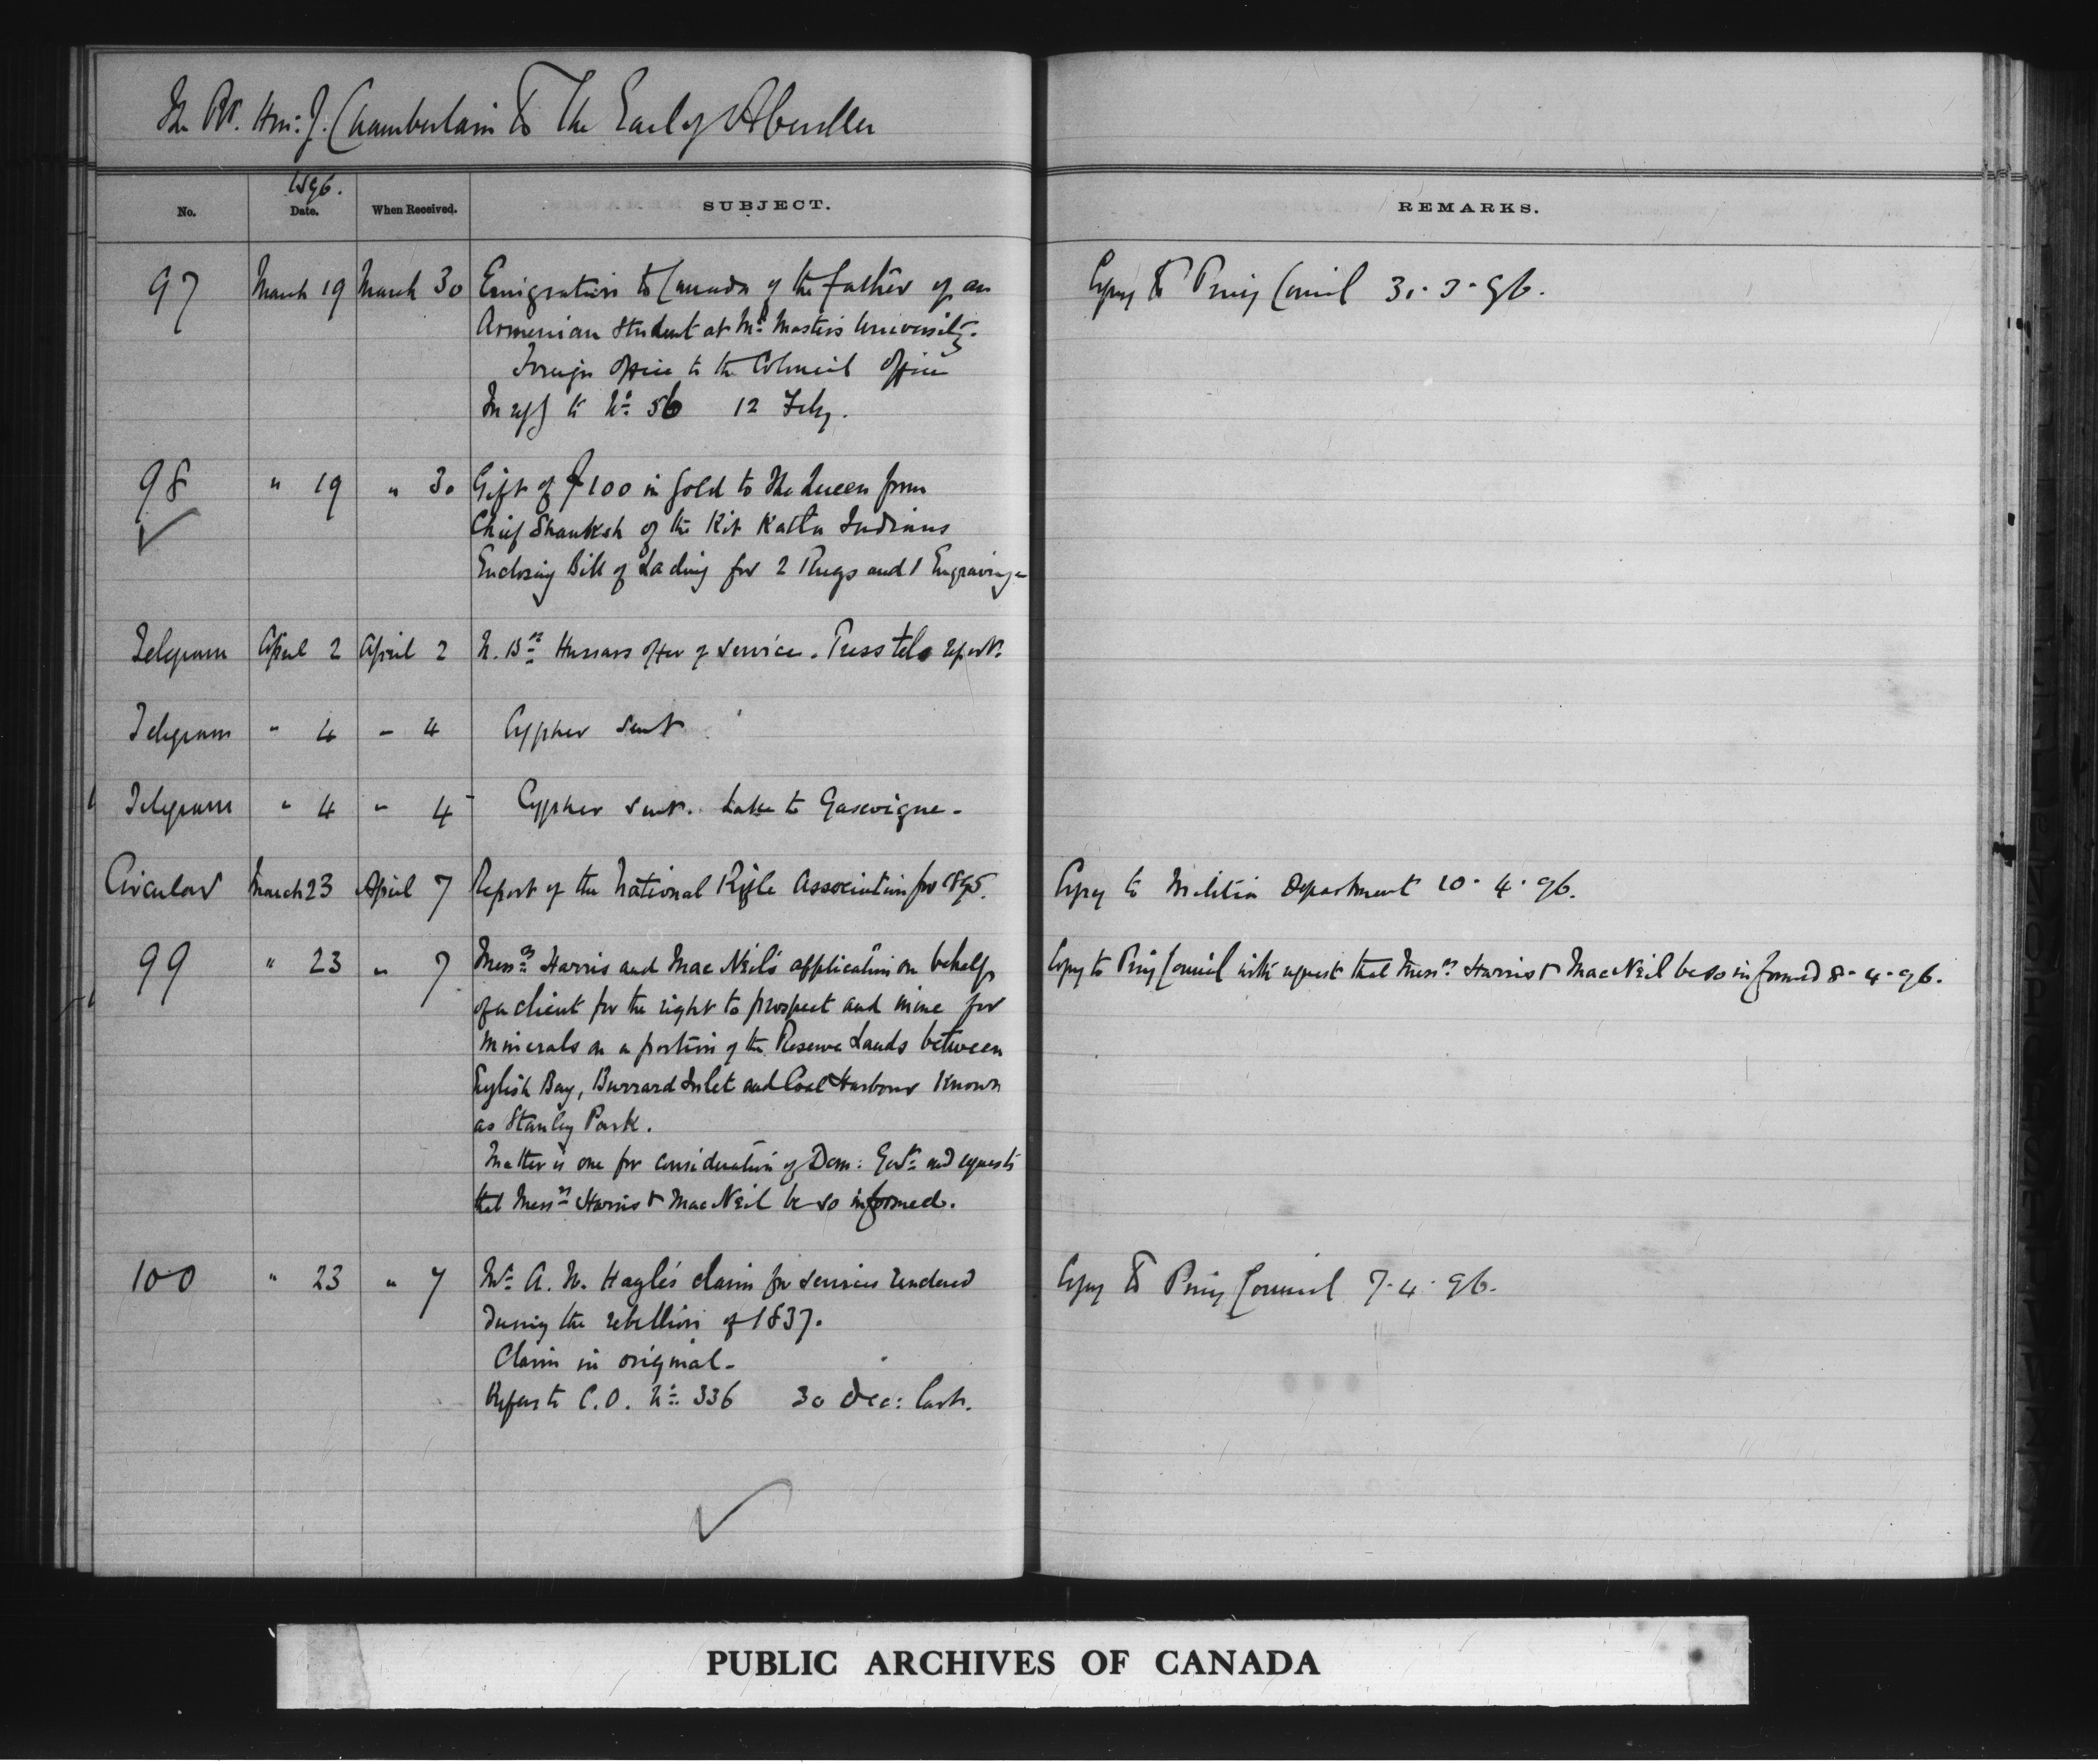 The Rt. Hon: J. Chamberlain To The Earl of Aberdeen
1896.
No. Date. When Received. SUBJECT. REMARKS.
97 March 19 March 30 Emigration to Canada of the father of an Copy To Privy Council 31·3·96.
Armenian Student at McMaster's University.
Foreign Office to the Colonial Office
In ref to No. 56 12 Feby.
98 " 19 " 30 Gift of $100 in gold to The Queen from
Chief Shauksh of the Kit Katla Indians
Enclosing Bill of Lading for 2 Rugs and 1 Engraving
Telegram April 2 April 2 N. Bn Hussars offer of service. Press tel report.
Telegram " 4 " 4 Cypher sent
Telegram " 4 " 4 Cypher sent. Lake to Gascoigne -
Circular March 23 April 7 Report of the National Rifle Association for 1895. Copy to Militia Department 10·4·96.
99 " 23 " 7 Messrs Harris and MacNeil's application on behalf Copy to Privy Council with request that Messrs Harris & MacNeil be so informed 8·4·96.
of a client for the right to prospect and mine for
minerals on a portion of the Reserve Lands between
English Bay, Burrard Inlet and Coal Harbour known
as Stanley Park.
Matter is one for consideration of Dom: Govt. and requests
that Messrs Harris & MacNeil be so informed.
100 " 23 " 7 Mr. A. N. Hagle's claim for services rendered Copy To Privy Council 7·4·96.
During the rebellion of 1837.
Claim in original -
Refers to C.O. No. 336 30 Dec: last.
PUBLIC ARCHIVES OF CANADA